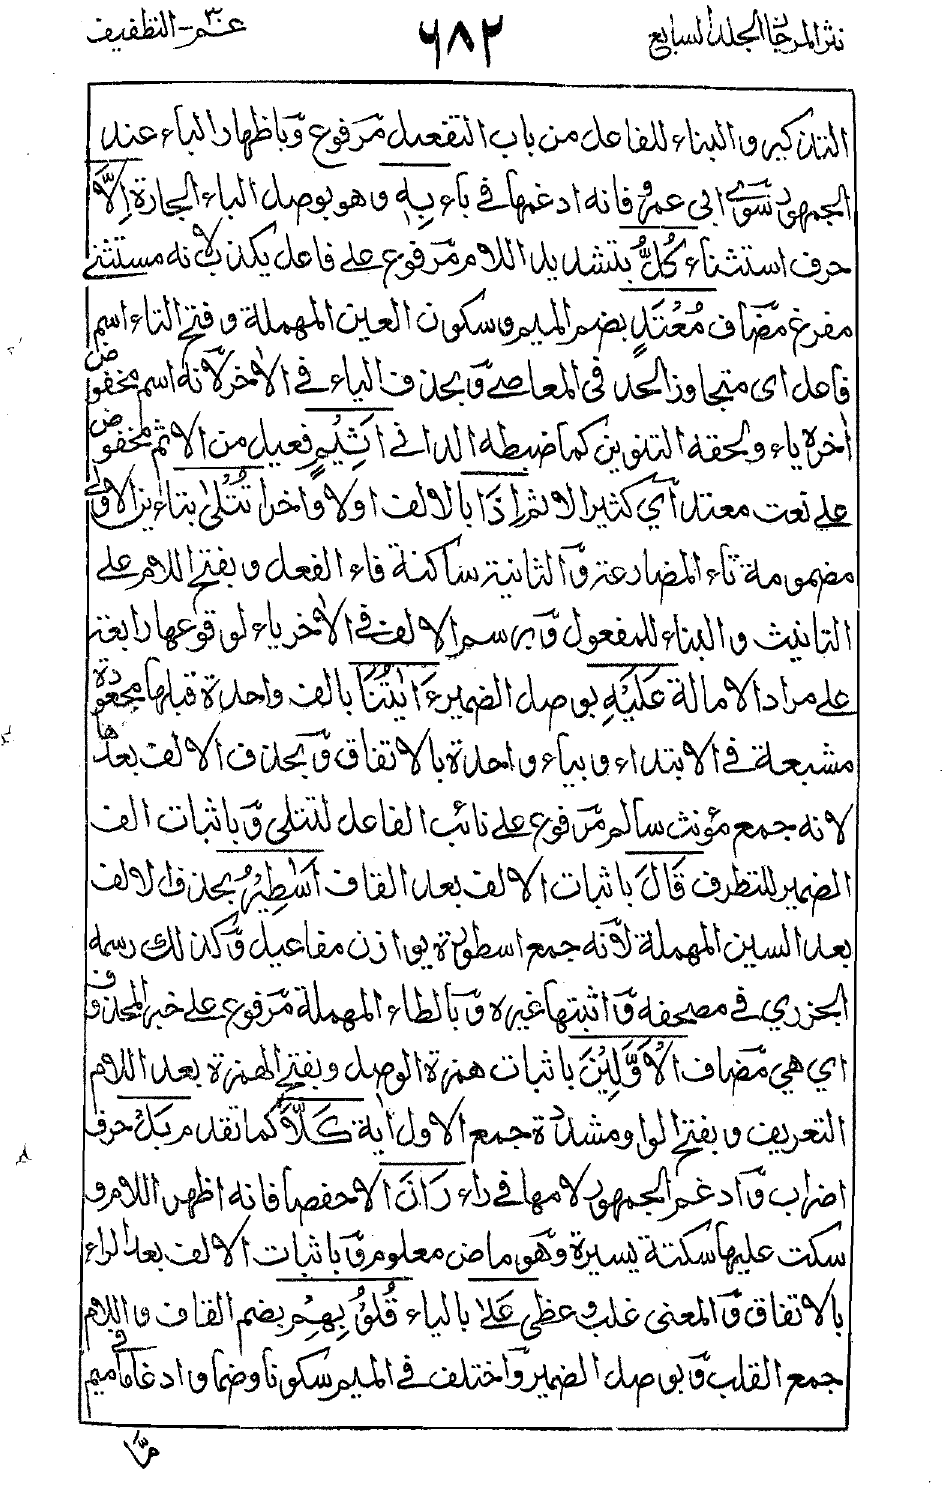 نثر المرجان الجلد السابع
٦٨٢
عم ٣٠ - التطفيف
التذكير و البناء للفاعل من باب التفعيل مرفوع و باظهار الباء عند
الجمهور سوى ابى عمرو فانه ادغمها فى باء بِهٖ و هو بوصل الباء الجارة اِلَّا
حرف استثناء كُلُّ بتشديد اللام مرفوع على فاعل يكذب لانه مستثنى
مفرغ مضاف مُعْتَدٍ بضم الميم و سكون العين المهملة و فتح التاء اسم
فاعل اى متجاوز الحد فى المعاصى و بحذف الياء فى الاخر لانه اسم مخفوض
اخره ياء و لحقه التنوين كما ضبطه الدانى اَثِيْمٍ فعيل من الاثم مخفوض
على نعت معتد اى كثير الاثم اِذَا بالالف اولا و اخرا تُتْلٰى بتاءين الاولى
مضمومة تاء المضارعة و الثانية ساكنة فاء الفعل و بفتح اللام على
التانيث و البناء للمفعول و برسم الالف فى الاخر ياء لوقوعها رابعة
على مراد الامالة عَلَيْهِ بوصل الضمير ءَايٰتُنَا بالف واحدة قبلها مجعودة
مشبعة فى الابتداء و بياء واحدة بالاتفاق و بحذف الالف بعدها
لانه جمع مؤنث سالم مرفوع على نائب الفاعل لتتلى و باثبات الف
الضمير للتطرف قَالَ باثبات الالف بعد القاف اَسٰطِيْرُ بحذف الالف
بعد السين المهملة لانه جمع اسطورة بوازن مفاعيل و كذلك رسمه
الجزري فى مصحفه و اثبتها غيره و بالطاء المهملة مرفوع على خبر المحذوف
اي هي مضاف الْاَوَّلِيْنَ باثبات همزة الوصل و بفتح الهمزة بعد اللام
التعريف و بفتح الواو مشددة جمع الاول اٰية كَلَّا كما تقدم بَلْ حرف
اضراب و ادغم الجمهور لامها فى راء رَانَ الا حفصا فانه اظهر اللام و
سكت عليها سكتة يسيرة و هو ماض معلوم و باثبات الالف بعد الراء
بالاتفاق و المعنى غلب و غطى عَلٰى بالياء قُلُوْبِهِمْ بضم القاف و اللام
جمع القلب و بوصل الضمير و اختلف فى الميم سكونا و ضما و ادغاما فى ميم
مَّا